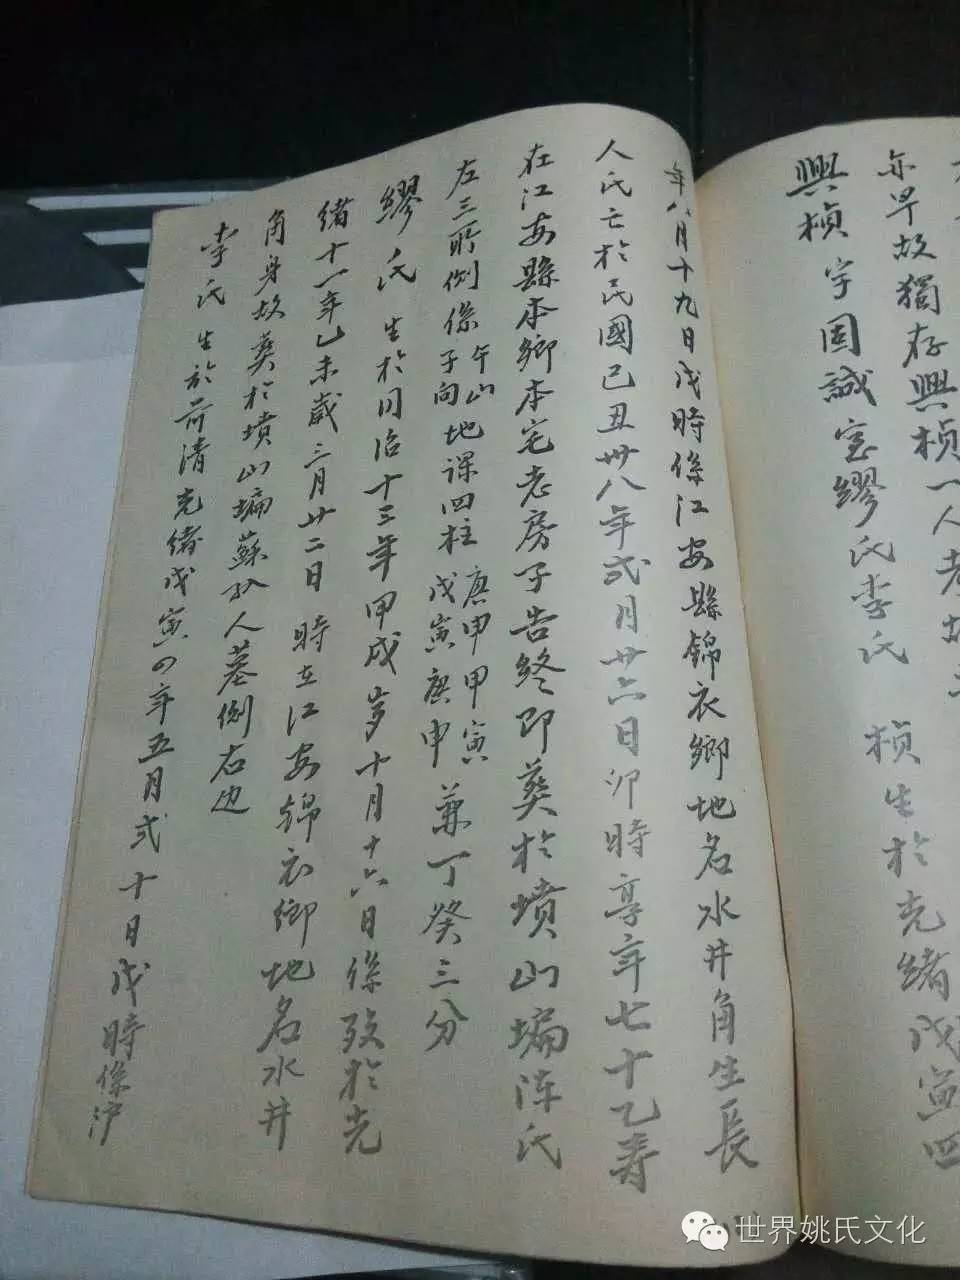 亦早故獨存興楨一人考
興楨 字国誠室繆氏李氏 楨生於光緒戊寅四
年八月十九日戌時係江安縣錦衣鄉地名水井角生長
人氏亡於民國己丑卅八年弍月廿六日卯時享年七十乙寿
在江安縣本鄉本宅老房子告终即葬於墳山塆陈氏
左三所側係午山子向地课四柱庚申甲寅戊寅庚申兼丁癸三分
繆氏 生於同治十三年甲戌岁十月十六日係殁於光
绪十一年乙未歳三月廿二日 時在江安錦衣鄉地名水井
角身故葬於墳山塆蘇孙人墓側右边
李氏 生於前清光緒戊寅四年五月弍十日戌時係泸
世界姚氏文化